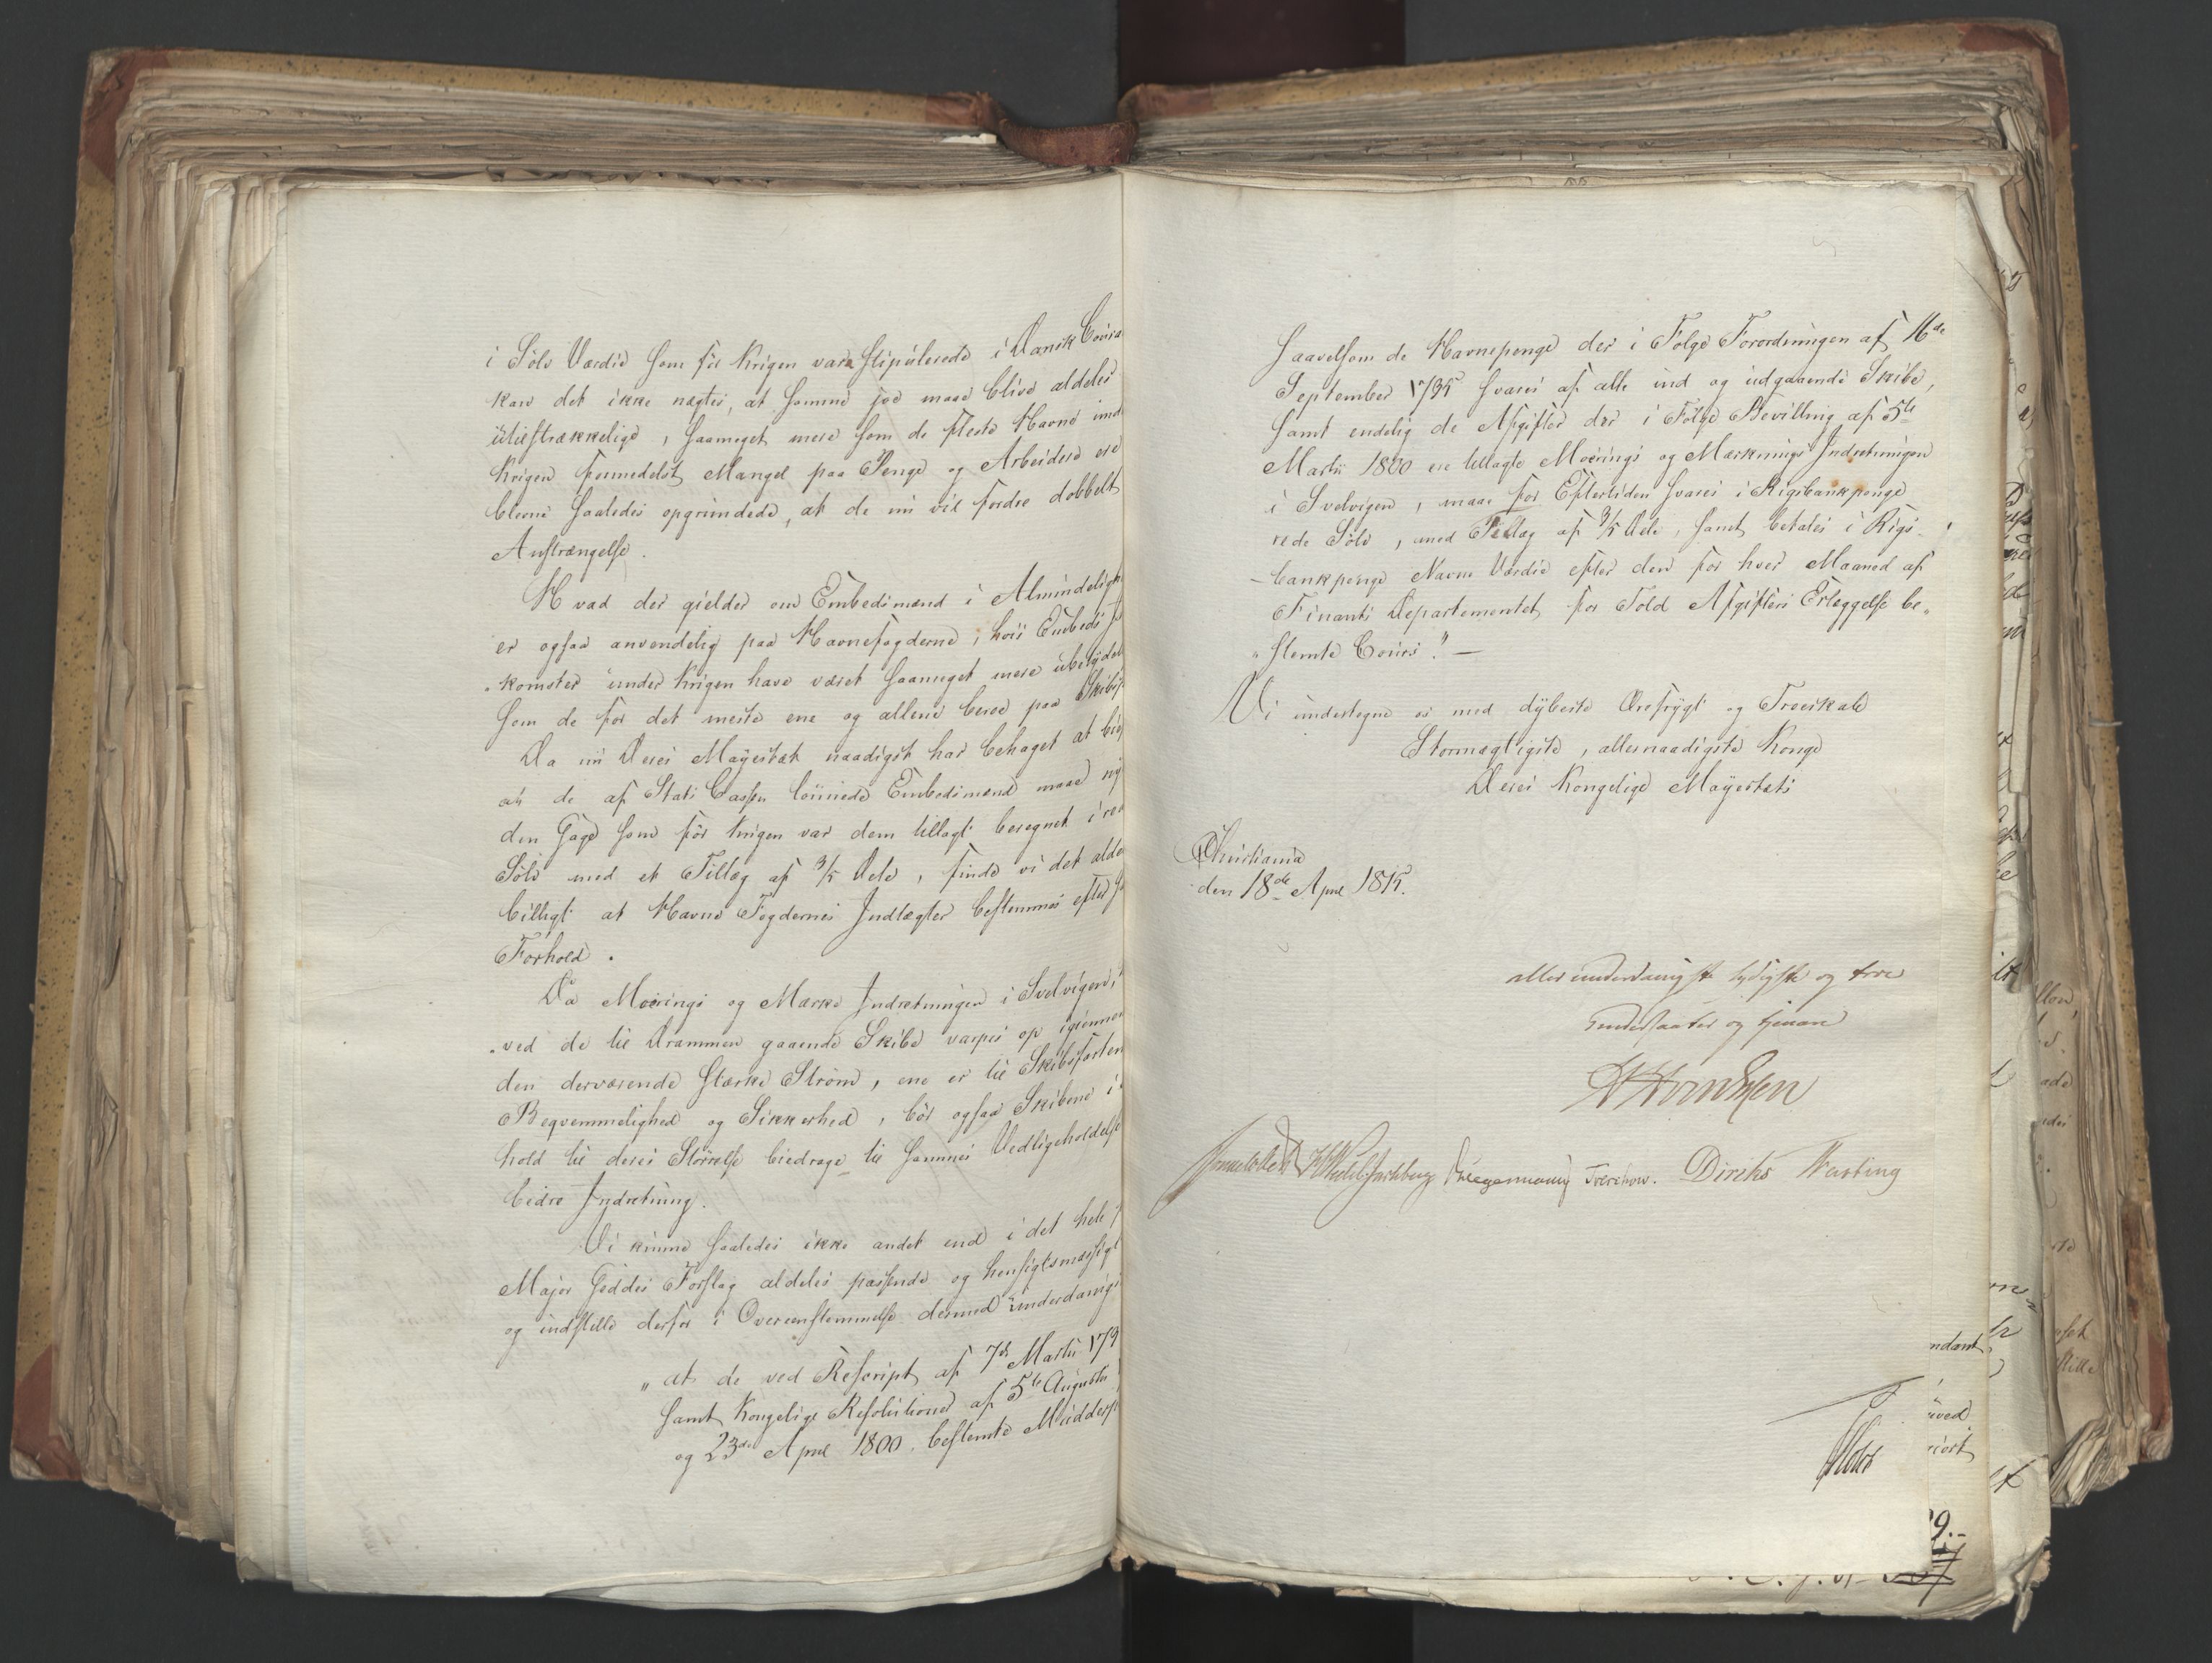 i Sölv Værdie som för Krigen vare stipulerede i Dansk Coura
kan det ikke nægtes, at samme jo maae blive aldeles
utilstrækkelige, saameget mere som de fleste Havne und
Krigen formedelst Mangel paa Penge og Arbeidere ere
blevne saaledes opgrundede, at de nu vil fordre dobbelt
Anstrængelse.
Hvad der gielder om Embedsmænd i Almindeligh
er ogsaa anvendelig paa Havnefogderne, hvis Embeds
komster under Krigen have været saameget mere ubetydel
som de for det meste ene og allene beroe paa Skibs
Da nu Deres Mayestæt naadigst har behaget at
at de af Stats Cassen lönnede Embedsmænd maae ny
den Gage som för Krigen var dem tillagt beregnet i re
Sölv med et Tillæg af 3/5 Dele, finde vi det alde
billigt at Havne Fogdernes Indtægter bestemmes efter
Forhold.
Da Moörings og Mærke Indretningen i Svelvigen,
ved de til Drammen gaaende Skibe varpes op igiennem
den derværende stærke Ström, ene er til Skibsfarten
Beqvemmelighed og Sikkerhed, bör ogsaa Skibene i
hold til deres Störrelse biedrage til sammes Vedligeholdelse
bedre Indretning.
Vi kunne saaledes ikke andet end i det hele
Major Geddes Forslag aldeles passende og hensigtsmæssigt
og indstille derfor i Overeenstemmelse dermed underdanigs
"at de ved Rescript af 7de Martii 179
samt Kongelige Resolutioner af 5te Augusti
og 23de April 1800. bestemte Mudder
saavelsom de Havnepenge der i Fölge Forordningen af 16de
September 1735 svares af alle ind og udgaaende Skibe,
samt endelig de Afgifter der i Fölge Bevilling af 5te
Martii 1800 ere tillagte Moörings og Mærknings Indretningen
i Svelvigen, maae for Eftertiden svares i Rigsbankpenge
rede Sölv, med Tillæg af 3/5 Dele, samt betales i Rigs-
bankpenge Navne Værdie efter den for hver Maaned af
Finants Departementet for Told Afgifters Erlæggelse be-
stemte Cours." —
Vi undertegne os med dybeste Ærefrygt og Troeskab
Stormægtigste, allernaadigste Konge
Deres Kongelige Mayestæts
Christiania
den 18de April 1815.
allerunderdanigste lydigste og troe
Undersaatter og tjenere
Sommerhielm HWedelJarlsberg Hegermann Treschow. Diriks Hasting
Holst
ndant
9.-